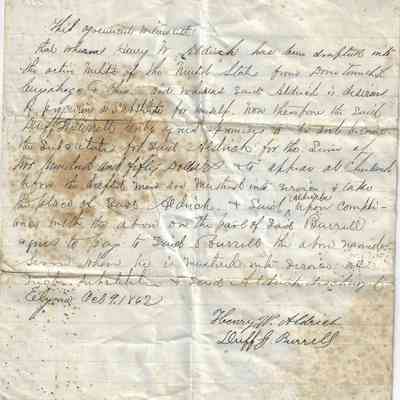 This agreement witnesseth
that whereas Henry W Aldrich has been drafted into
the active Militia of the United States from Township
Cuyahoga Co Ohio and whereas said Aldrich is desirous
of procuring a substitute for himself. Now therefore the said
Duff Burrell agrees promises to be and become
the substitute for said Aldrich for the Sum of
two hundred and fifty Dollars & to appear at
before the drafted men are Mustered into service & take
the place of said Aldrich. & said Aldrich upon compli-
ance with the above on the part of said Burrell
agrees to pay to said Burrell the above named
Sum when he is Mustered into service as
such Substitute & said Aldrich
Elyria Oct 9. 1862
Henry W. Aldrich
Duff G Burrell